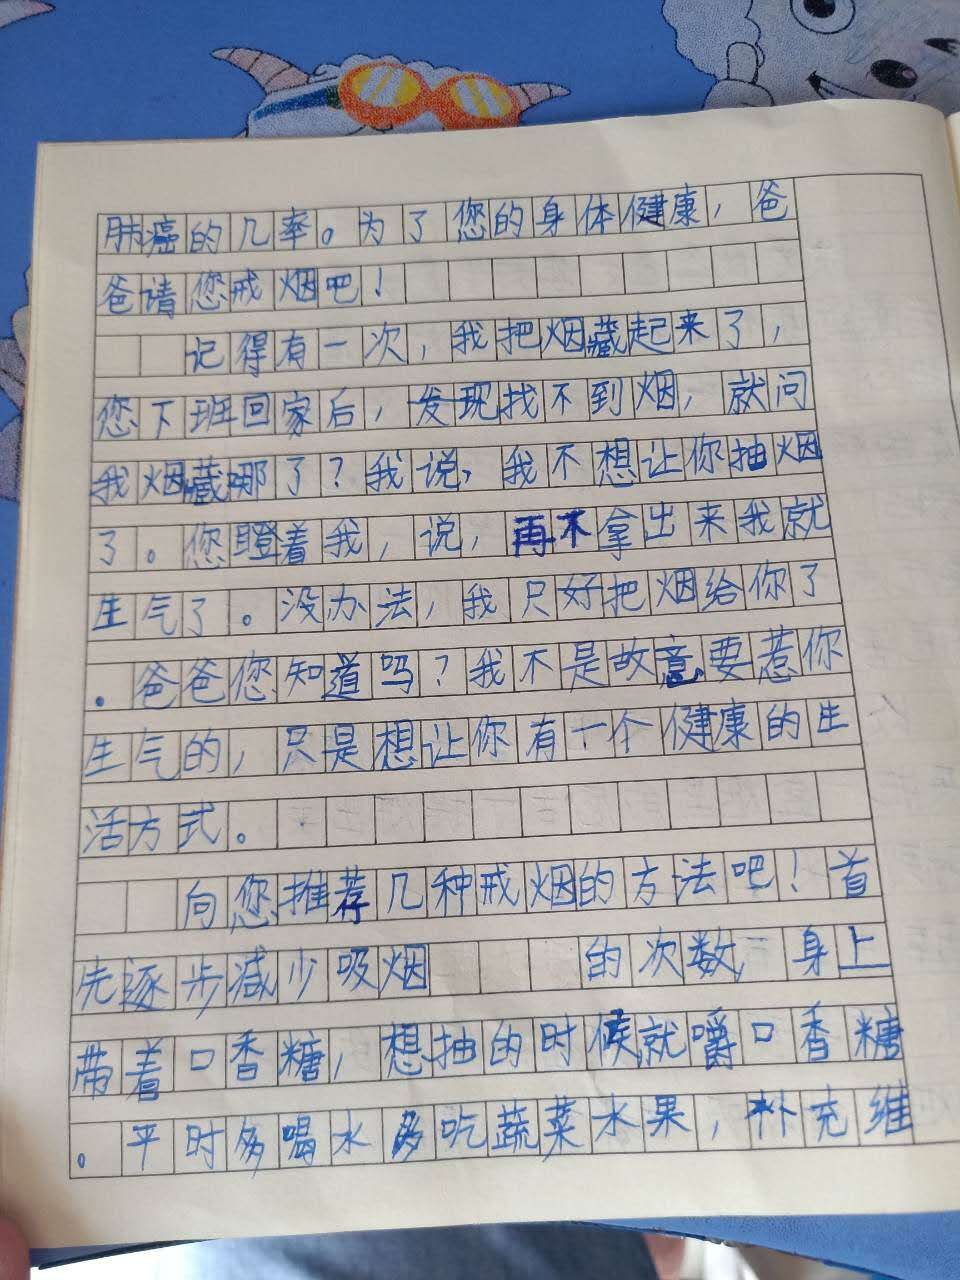 肺癌的几率。为了您的身体健康，爸
爸请您戒烟吧！
记得有一次，我把烟藏起来了，
您下班回家后，发现找不到烟，就问
我烟藏哪了？我说，我不想让你抽烟
了。您瞪着我，说，再不拿出来我就
生气了。没办法，我只好把烟给你了
。爸爸您知道吗？我不是故意要惹你
生气的，只是想让你有一个健康的生
活方式。
向您推荐几种戒烟的方法吧！首
先逐步减少吸烟的次数，身上
带着口香糖，想抽的时候就嚼口香糖
。平时多喝水多吃蔬菜水果，补充维